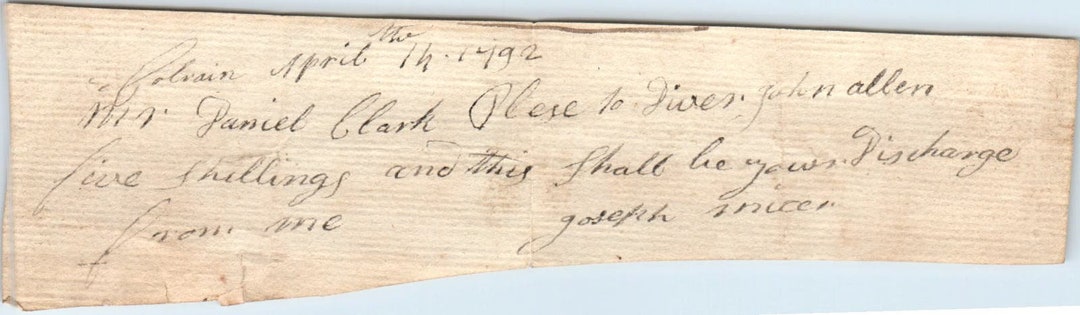 Colrain April 14th 1792
Mr Daniel Clark Plese to Diver John allen
five shillings and this shall be your Discharge
from me joseph